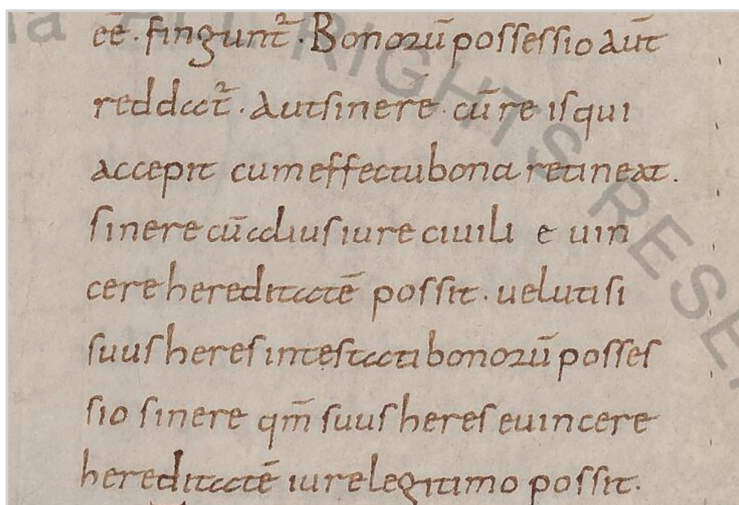 ēē. fingunt᷑. Bonoꝛū possessio aūt
reddat᷑. aut sinere. cū re is qui
accepit cum effectu bona retineat.
sine re cū alius iure ciuili e uin
cere hereditatē possit. uelut si
suus heres intestati bonoꝛū posses
sio sine re qm̄ suus heres euincere
hereditatē iure legitimo possit.
ALL RIGHTS RESE